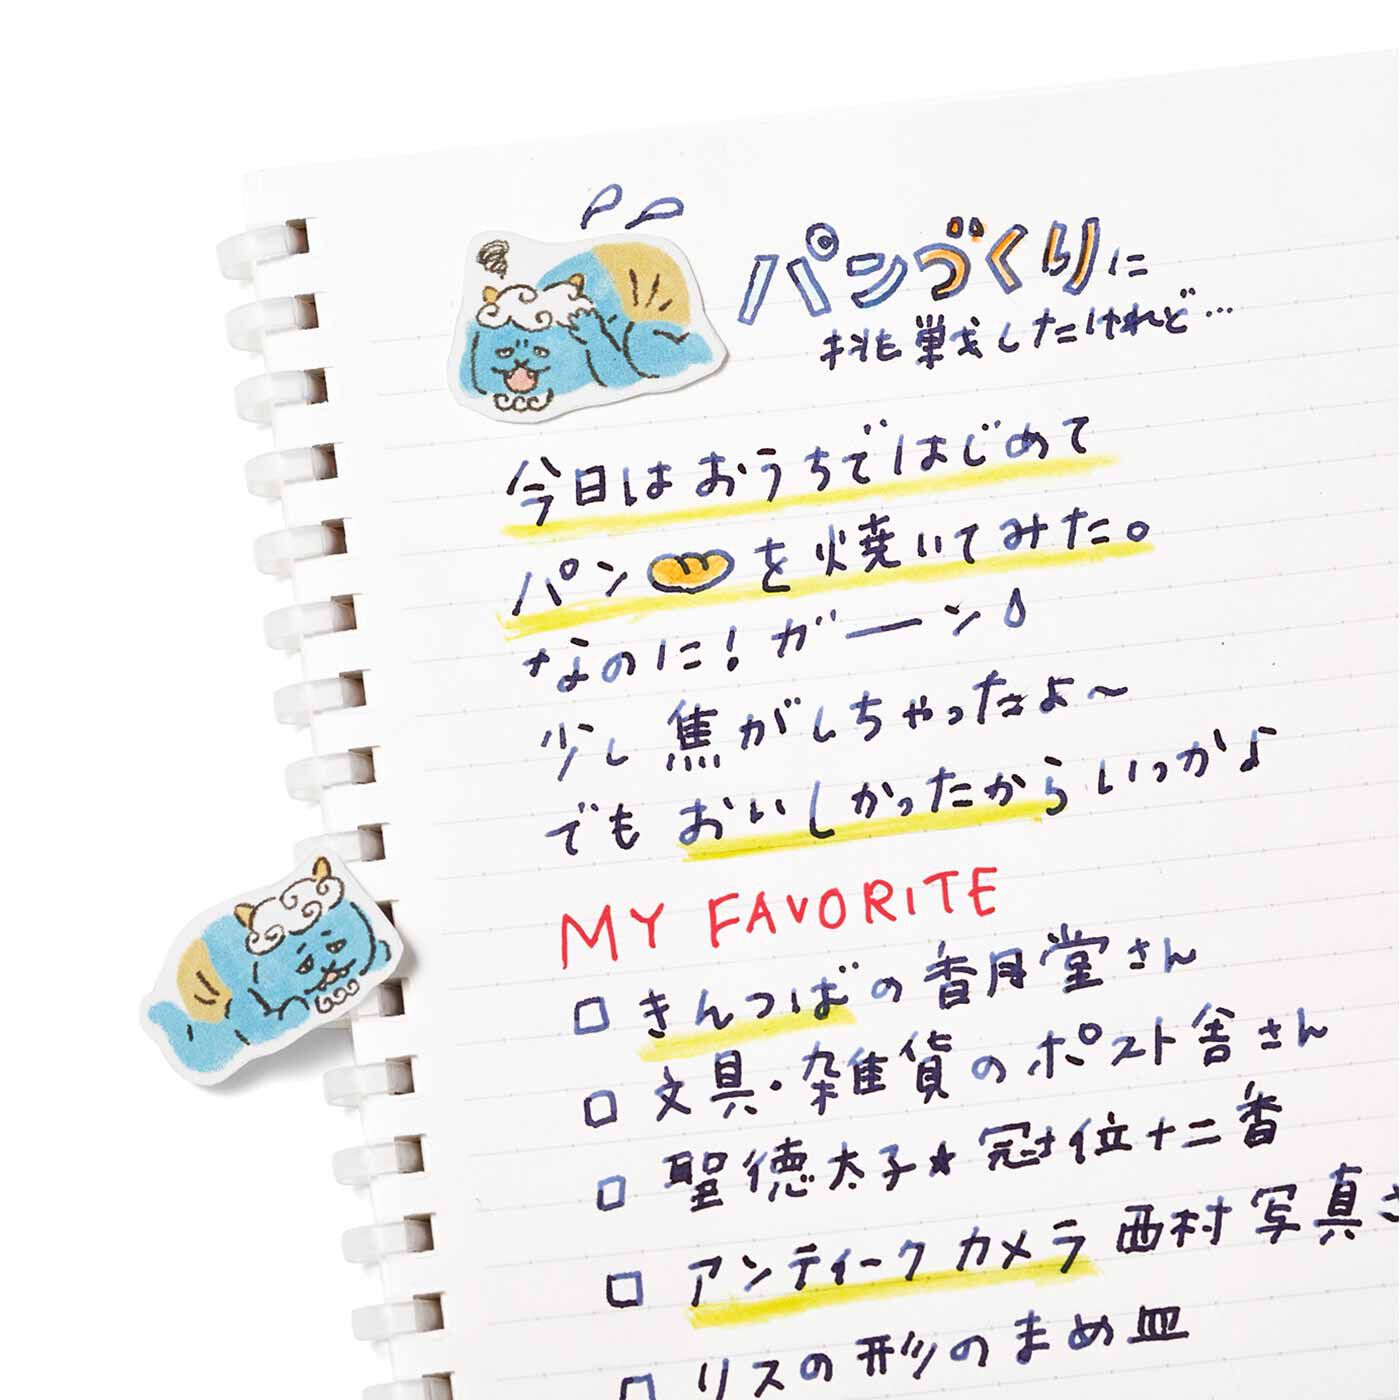 パンづくりに
挑戦したけれど…
今日はおうちではじめて
パンを焼いてみた。
なのに！ガーーン
少し焦がしちゃったよ～
でもおいしかったからいっか♪
MY FAVORITE
□ きんつばの香月堂さん
□ 文具・雑貨のポスト舎さん
□ 聖徳太子★冠位十二香
□ アンティークカメラ 西村写真さ
□ リスの形のまめ皿